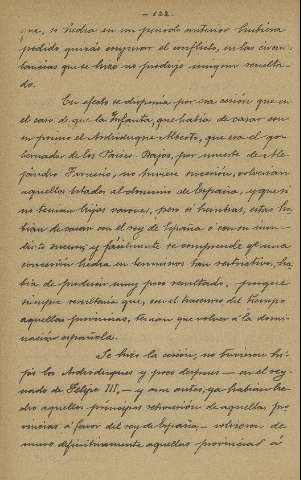 - 122 -
que, si hecha en un periodo anterior hubiera
podido quizás conjurar el conflicto, en las circuns-
tancias que se hizo no produjo ningun resulta-
do.
En efecto se disponia por esa cesión que en
el caso de que la Infanta, que habia de casar con
su primo el Archiduque Alberto, que era el go-
bernador de los Paises-Bajos, por muerte de Ale-
jandro Farnesio, no tuviere sucesión, volverian
aquellos Estados al dominio de España, y que si
no tenian hijos varones, pero si hembras, estas ha-
bian de casar con el rey de España o con su inme-
diato sucesor y fácilmente se comprende que una
concesión hecha en terminos tan restrictivos, ha-
bia de producir muy poco resultado, porque
siempre resultaria que, con el transcurso del tiempo
aquellas provincias, tenian que volver á la domi-
nación española.
Se hizo la cesión, no tuvieron hi-
jos los Archiduques y poco despues — en el rey-
nado de Felipe III, — y aun antes, ya habian he-
cho aquellos principes retrocesión de aquellas pro-
vincias á favor del rey de España, — volvieron de
nuevo definitivamente aquellas provincias á